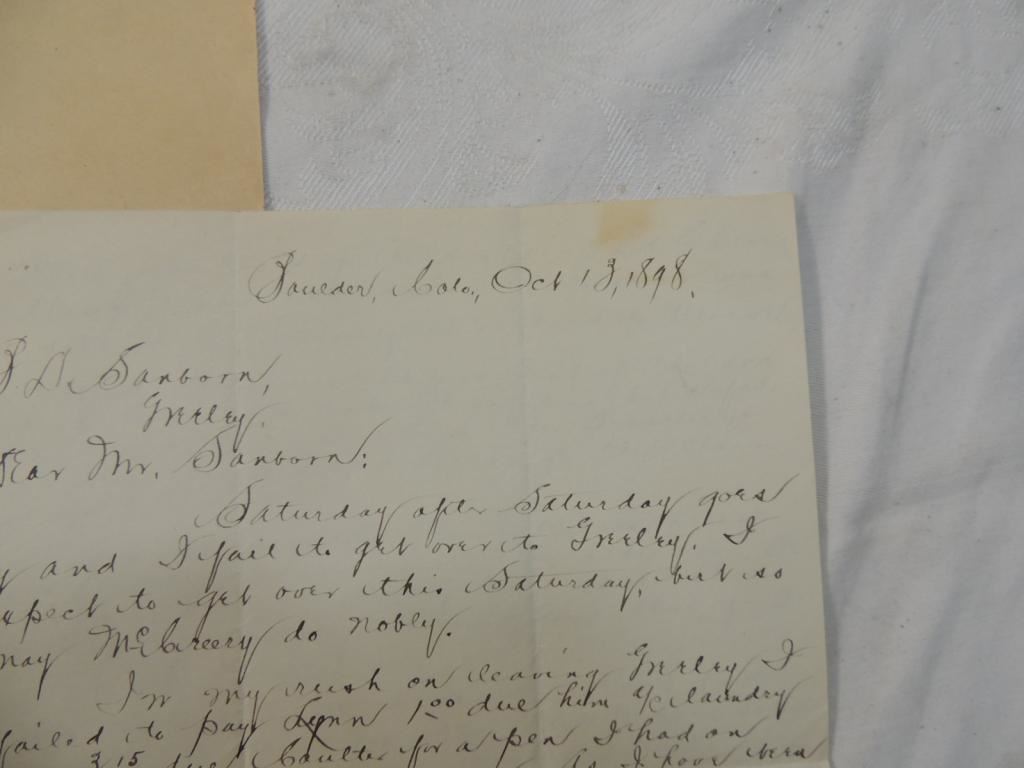 Boulder, Colo., Oct 13, 1898.
D. Sanborn,
Greeley.
Dear Mr. Sanborn:
Saturday after Saturday goes
by and I fail to get over to Greeley. I
expect to get over this Saturday, but so
may McCreery do nobly.
In my rush on leaving Greeley I
failed to pay Lynn 1.00 due him a/c laundry
3.15 due Coulter for a pen I had on
I have been